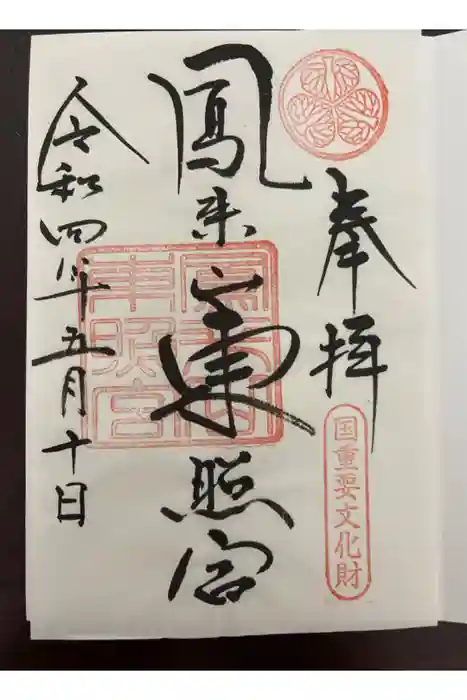 奉拝
国重要文化財
鳳来山東照宮
鳳来山東照宮
令和四年五月十日